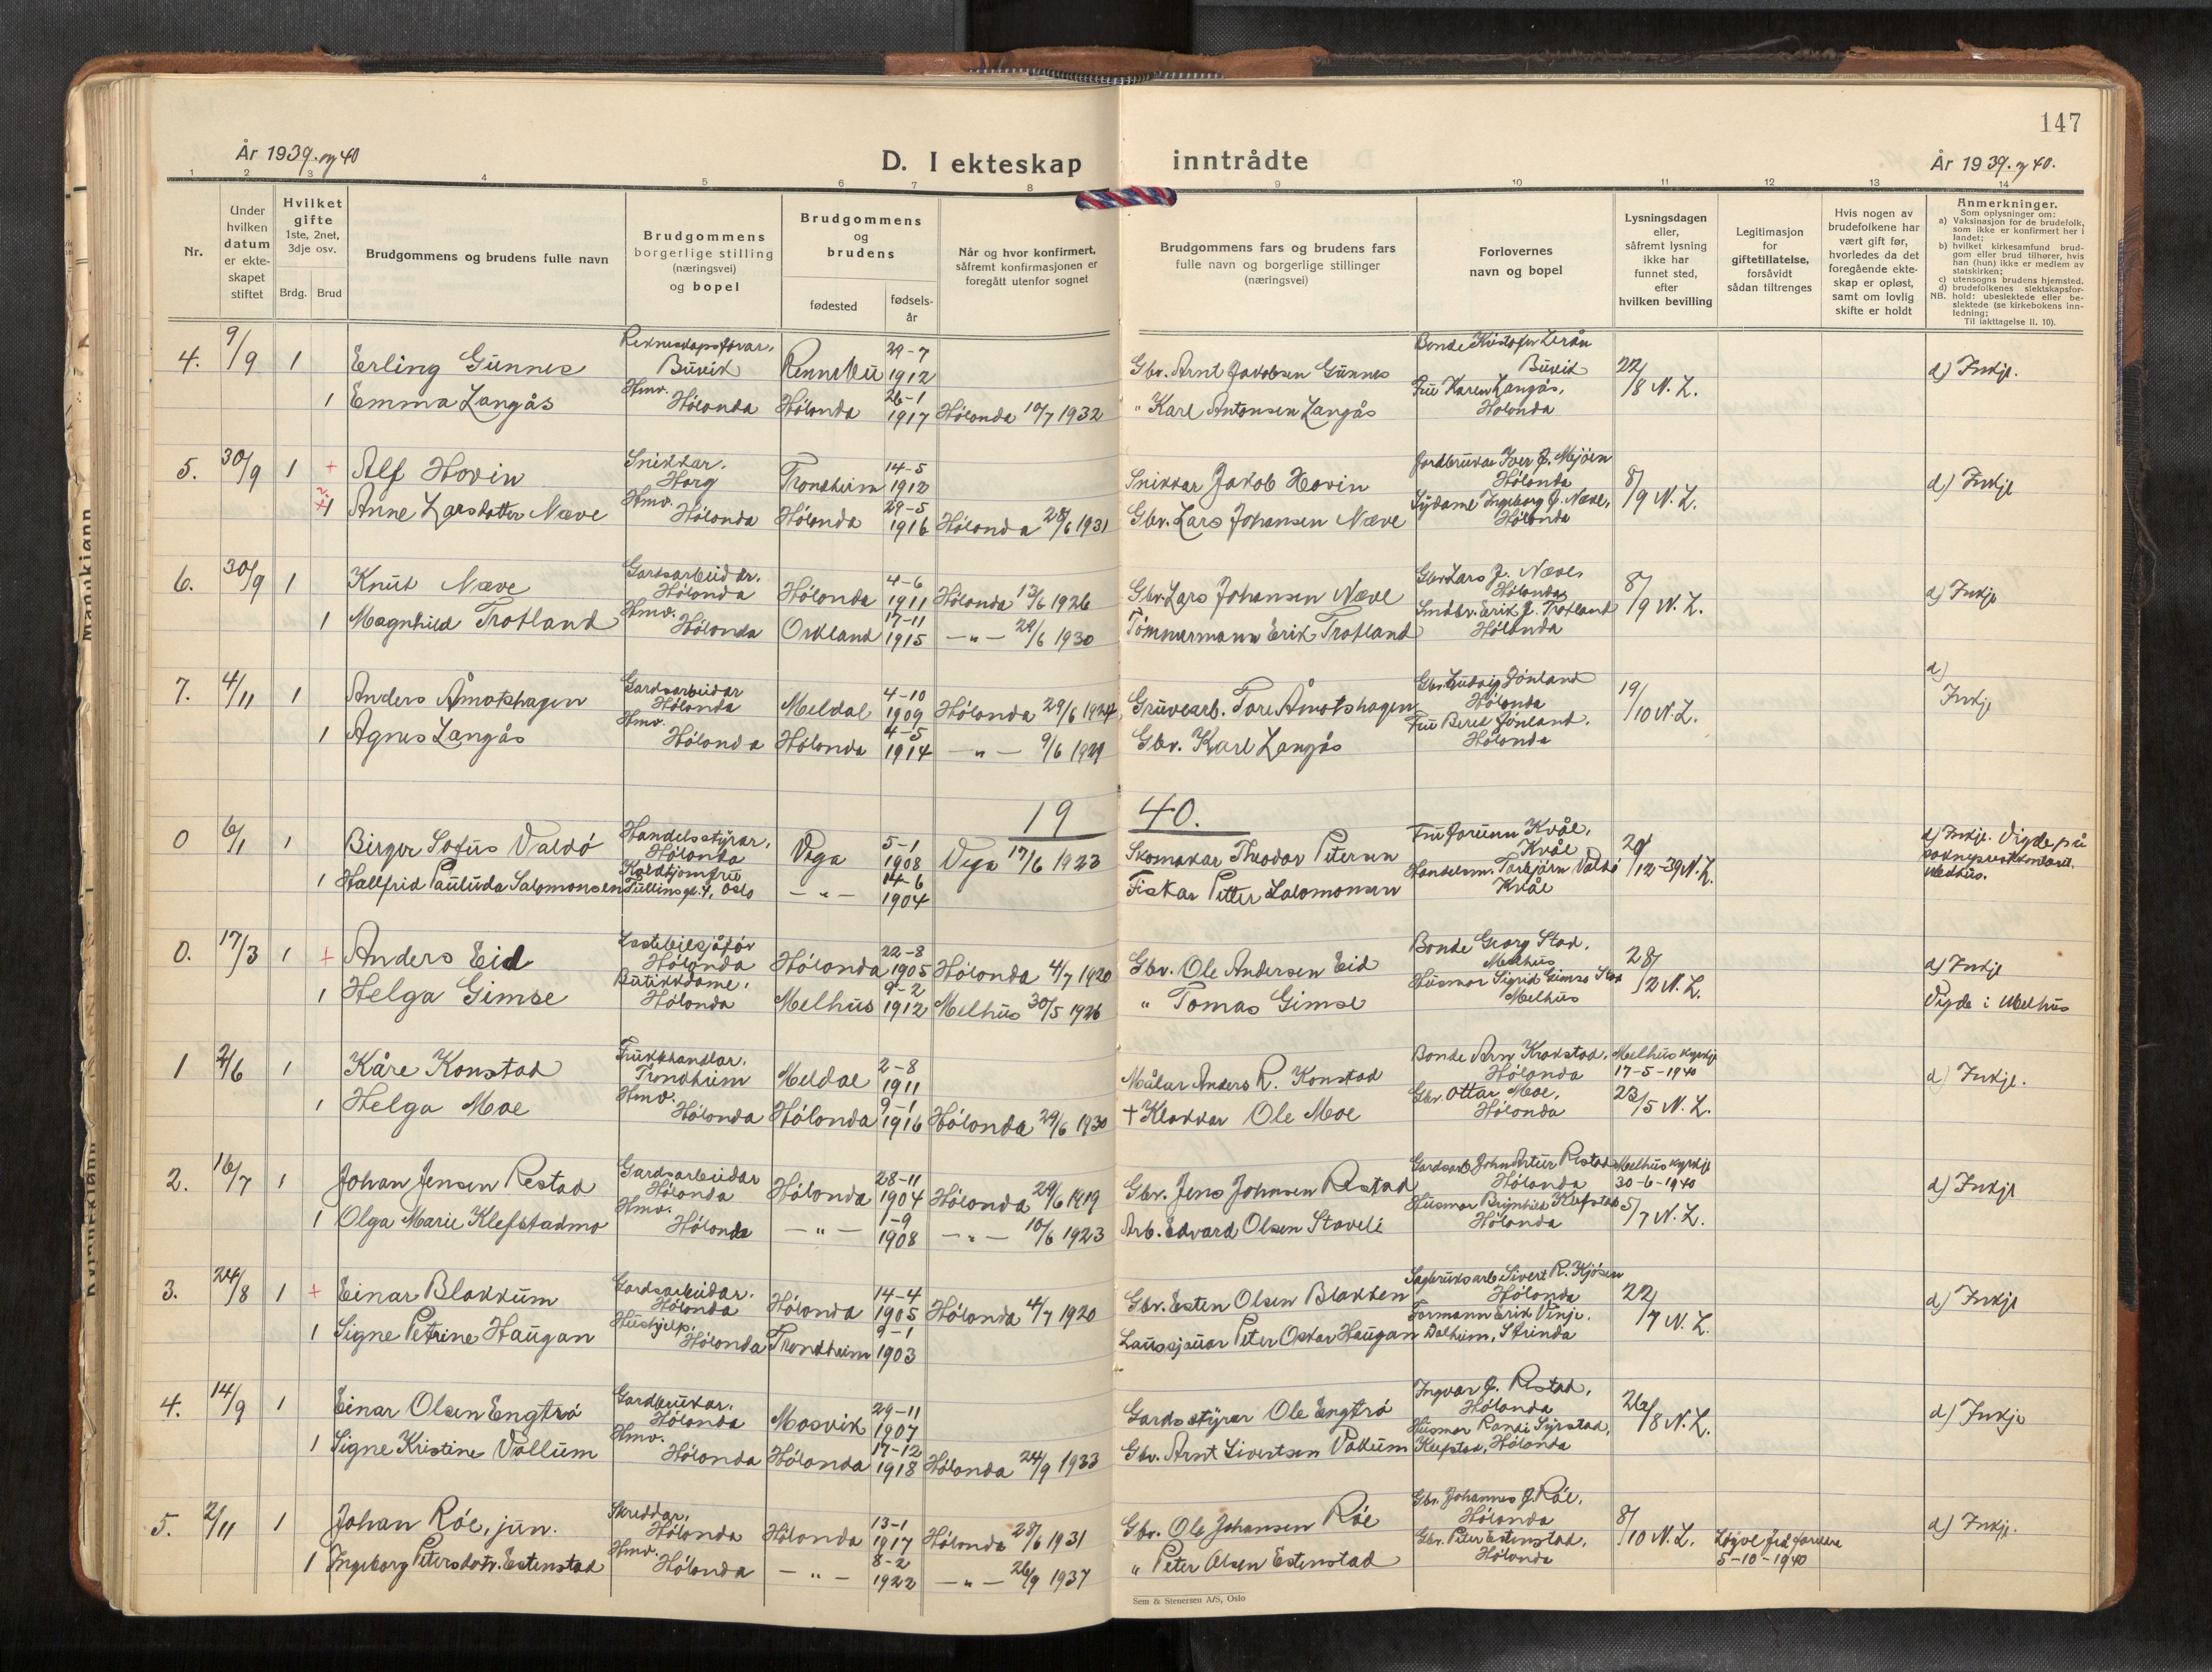 147
År 1939. og 40
D. I ekteskap inntrådte
År 1939. og 40.
1 2 3 4 5 6 7 8 9 10 11 12 13 14
Nr.
Under hvilken datum er ekteskapet stiftet
Hvilket gifte 1ste, 2net, 3dje osv.
Brdg. Brud
Brudgommens og brudens fulle navn
Brudgommens borgerlige stilling (næringsvei) og bopel
Brudgommens og brudens
fødested
fødsels-år
Når og hvor konfirmert, såfremt konfirmasjonen er foregått utenfor sognet
Brudgommens fars og brudens fars fulle navn og borgerlige stillinger (næringsvei)
Forlovernes navn og bopel
Lysningsdagen eller, såfremt lysning ikke har funnet sted, efter hvilken bevilling
Legitimasjon for giftetillatelse, forsåvidt sådan tiltrenges
Hvis nogen av brudefolkene har vært gift før, hvorledes da det foregående ekteskap er opløst, samt om lovlig skifte er holdt
Anmerkninger.
Som oplysninger om:
a) Vaksinasjon for de brudefolk, som ikke er konfirmert her i landet;
b) hvilket kirkesamfund brudgom eller brud tilhører, hvis han (hun) ikke er medlem av statskirken;
c) utensogns brudens hjemsted.
d) brudefolkenes slektskapsforhold: ubeslektede eller beslektede (se kirkebokens innledning;
NB.
Til iakttagelse II. 10).
4. 9/9 1 Erling Gunnes Rekneskapsførar, Buvik Rennebu 29-7 1912 Gbr. Arnt Jakobsen Gunnes Bonde Kristofer Lerån Buvik 22/8 N. L. d) Inkje.
1 Emma Langås Hmv. Hølonda Hølonda 26-1 1917 Hølonda 10/7 1932 " Karl Antonsen Langås Fru Karen Langås, Hølonda
5. 30/9 1 + Alf Hovin Snikkar. Horg Trondheim 14-5 1912 Snikkar Jakob Hovin Jordbrukar Iver J. Mjøen Hølonda 8/9 N. L. d) Inkje
1 Anne Larsdotter Næve Hmv. Hølonda Hølonda 29-5 1916 Hølonda 28/6 1931 Gbr. Lars Johansen Næve Sydame Ingeborg J. Næve, Hølonda
6. 30/9 1 Knut Næve Gardsarbeidar. Hølonda Hølonda 4-6 1911 Hølonda 13/6 1926 Gbr. Lars Johansen Næve Gbr. Lars J. Næve, Hølonda, 8/9 N. L. d) Inkje
1 Magnhild Trotland Hmv. Hølonda Orkland 17-11 1915 — " — 29/6 1930 Tømmermann Erik Trotland Småbr. Erik J. Trotland Hølonda
7. 4/11 1 Anders Åmotshagen Gardsarbeidar Hølonda Meldal 4-10 1909 Hølonda 29/6 1924 Gruvearb. Tore Åmotshagen Gbr. Ludvig Jønland Hølonda 19/10 N. L. d) Inkje
1 Agnes Langås Hmv. Hølonda Hølonda 4-5 1914 — " — 9/6 1929 Gbr. Karl Langås Fru Beret Jønland. Hølonda
19 40.
0 6/1 1 Birger Sofus Valdø Handelsstyrar, Hølonda Vega 5-1 1908 Vega 17/6 1923 Skomakar Theodor Petersen Fru Jorunn Kvåle, Kvål 29/12-39 N. L. d) Inkje. Vigde på sokneprestkontoret. Melhus.
1 Hallfrid Pauluda Salomonsen Koldtjomfru Tullinsgt. 4, Oslo — " — 14-6 1904 Fiskar Petter Salomonsen Handelsm. Torbjørn Valdø Kvål
0. 17/3 1 + Anders Eid Lastebilsjåfør Hølonda Hølonda 22-8 1905 Hølonda 4/7 1920 Gbr. Ole Andersen Eid Bonde Georg Stad. Melhus 28/2 N. L. d) Inkje
1 Helga Gimse Butikkdame, Hølonda Melhus 9-2 1912 Melhus 30/5 1926 " Tomas Gimse Husmor Sigrid Gimse Stad Melhus Vigde i Melhus
1 2/6 1 Kåre Konstad Frukthandlar. Trondheim Meldal 2-8 1911 Målar Anders R. Konstad Bonde Arn Krokstad, Hølonda Melhus kyrkje 17-5-1940 d) Inkje.
1 Helga Moe Hmv. Hølonda Hølonda 9-1 1916 Hølonda 29/6 1930 + Klokkar Ole Moe Gbr. Ottar Moe, Hølonda 23/5 N. L.
2. 16/7 1 Johan Jensen Restad Gardsarbeidar Hølonda Hølonda 28-11 1904 Hølonda 29/6 1919 Gbr. Jens Johnsen Restad Gardsarb. John Artur Restad Hølonda Melhus kyrkje 30-6-1940 d) Inkje
1 Olga Marie Klefstadmo Hmv. Hølonda — " — 1-9 1908 — " — 10/6 1923 Arb. Edvard Olsen Staveli Husmor Brynhild Klefstad Hølonda 5/7 N. L.
3. 24/8 1 + Einar Blokkum Gardsarbeidar. Hølonda Hølonda 14-4 1905 Hølonda 4/7 1920 Gbr. Esten Olsen Blokken Sagbruksarb. Sivert R. Kjøsen Hølonda 22/7 N. L. d) Inkje
1 Signe Petrine Haugan Hushjelp. Hølonda Trondheim 9-1 1903 Laussjauar Peter Oskar Haugan Formann Erik Vinje. Dalheim, Strinda
4. 14/9 1 Einar Olsen Engtrø Gardbrukar. Hølonda Mosvik 29-11 1907 Gardsstyrar Ole Engtrø Ingvar J. Restad, Hølonda 26/8 N. L. d) Inkje
1 Signe Kristine Vollum Hmv. Hølonda Hølonda 17-12 1918 Hølonda 24/9 1933 Gbr. Arnt Sivertsen Vollum Husmor Randi Syrstad, Klefstad, Hølonda
5. 2/11 1 Johan Røe, jun. Skreddar, Hølonda Hølonda 13-1 1917 Hølonda 28/6 1931 Gbr. Ole Johansen Røe Gbr. Johannes J. Røe, Hølonda 8/10 N. L. d) Inkje.
1 Ingeborg Petersdotr. Estenstad Hmv. Hølonda — " — 8-2 1922 — " — 26/9 1937 " Peter Olsen Estenstad Gbr. Peter Estenstad, Hølonda Løyve frå foreldre 5-10-1940
Sem & Stenersen A/S, Oslo